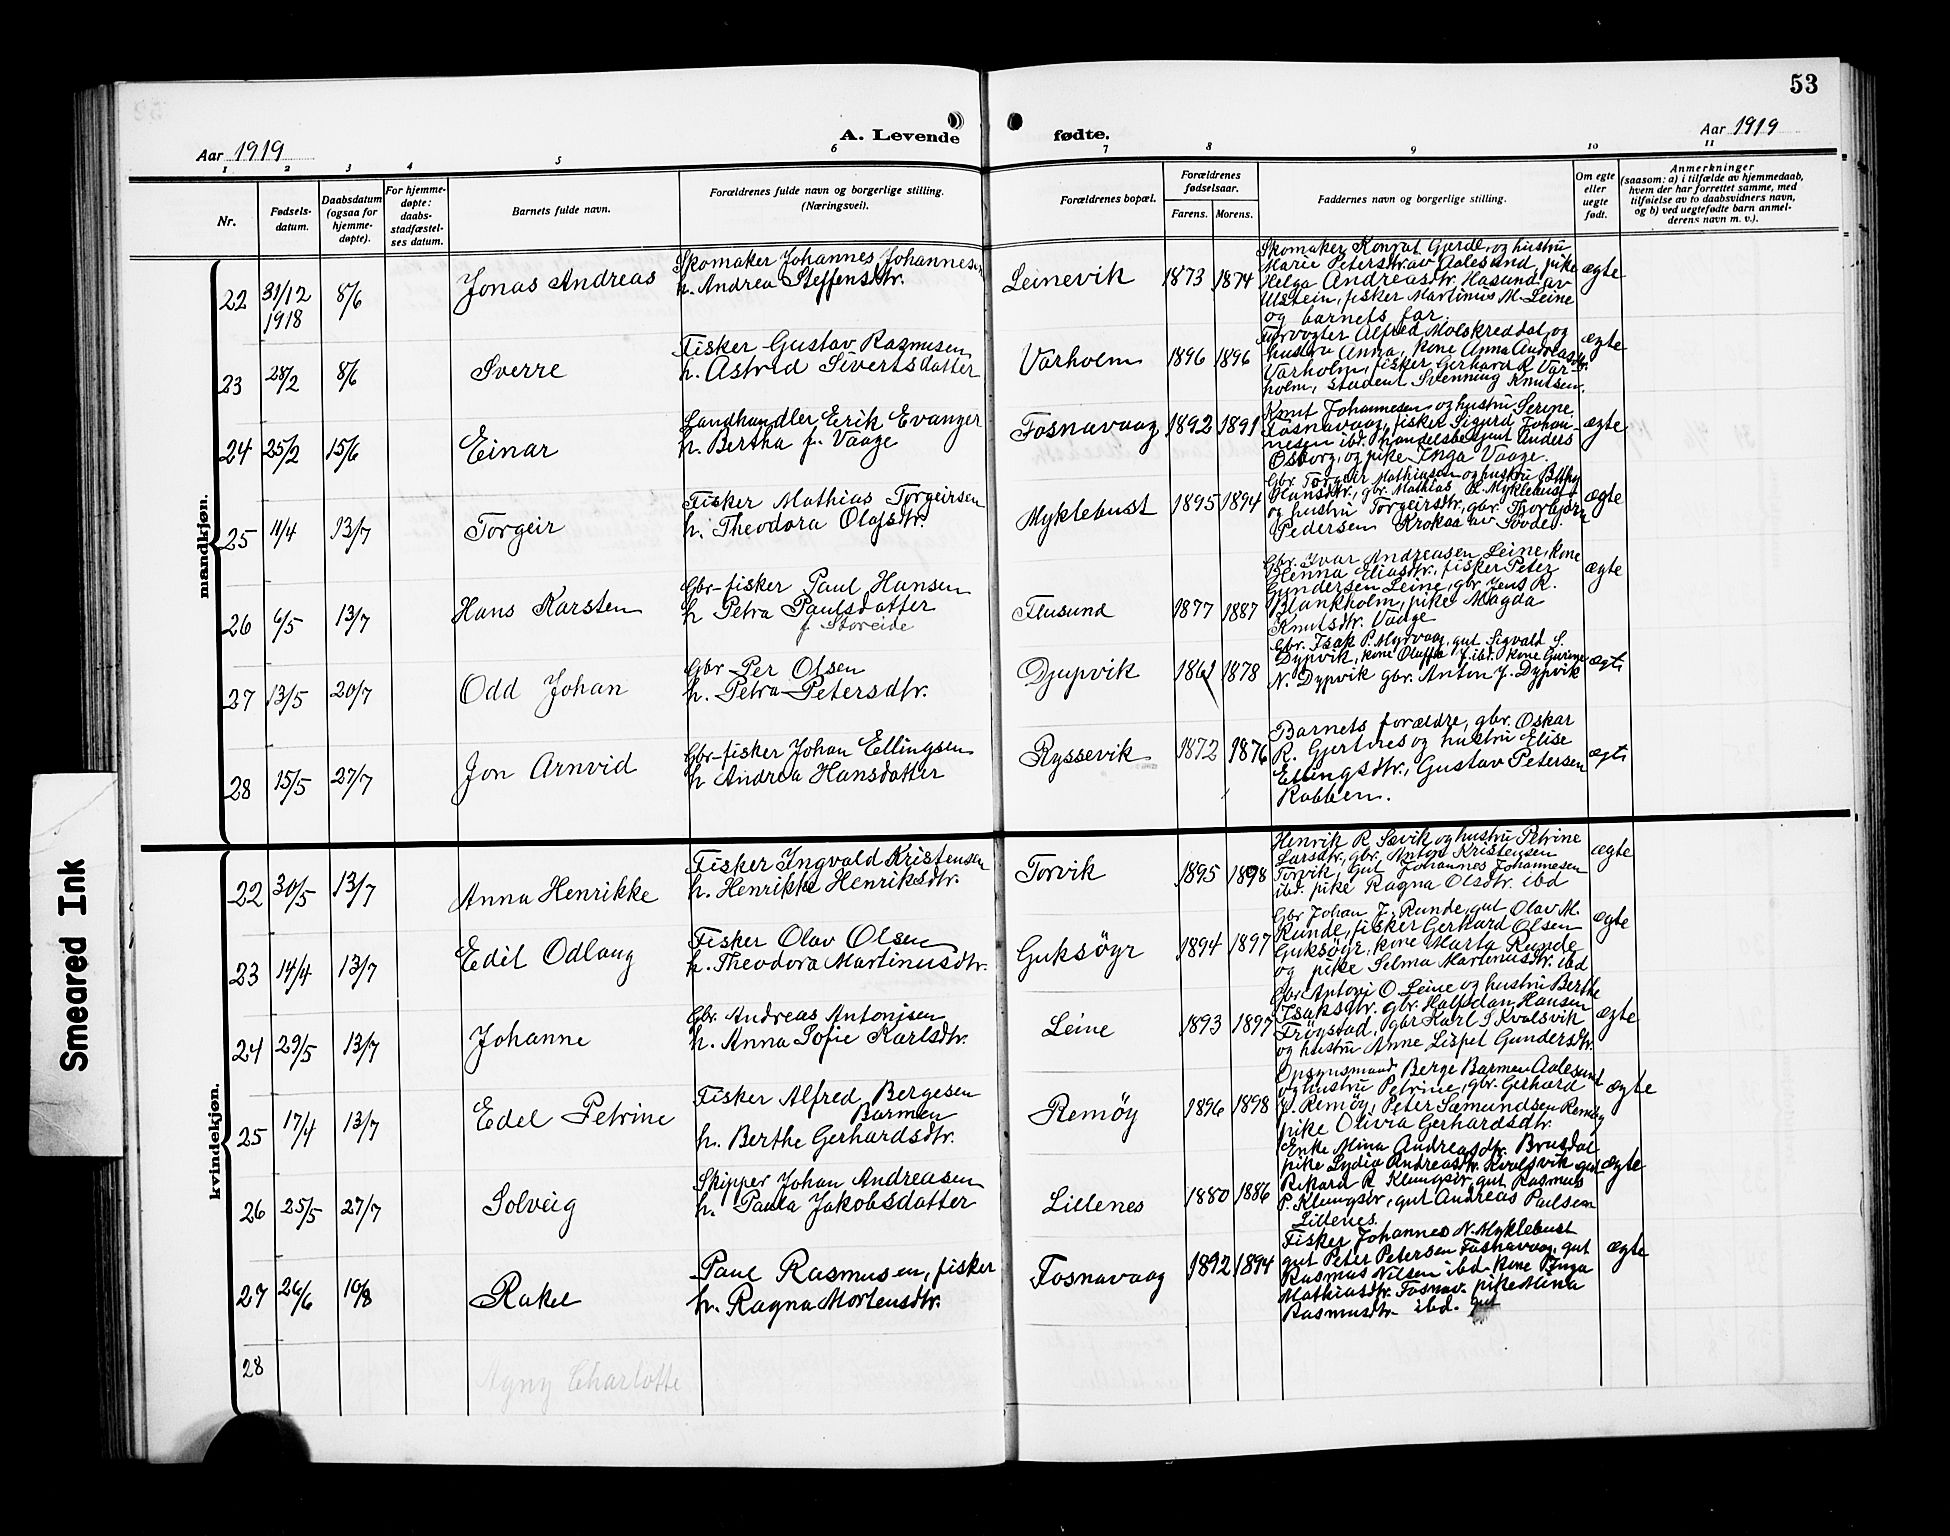 53
A. Levende fødte.
Aar 1919
Aar 1919
1 2 3 4 5 6 7 8 9 10 11
Nr.
Fødsels-
datum.
Daabsdatum
(ogsaa for
hjemme-
døpte).
For hjemme-
døpte:
daabs-
stadfæstel-
ses datum.
Barnets fulde navn.
Forældrenes fulde navn og borgerlige stilling.
(Næringsvei).
Forældrenes bopæl.
Forældrenes
fødselsaar.
Farens. Morens.
Faddernes navn og borgerlige stilling.
Om egte
eller
uegte
født.
Anmerkninger
(saasom: a) i tilfælde av hjemmedaab,
hvem der har forrettet samme, med
tilføielse av to daabsvidners navn,
og b) ved uegtefødte barn anmel-
derens navn m. v.).
mandkjøn.
22 31/12 1918 8/6 Jonas Andreas
Skomaker Johannes Johannesen
h. Andrea Steffensdtr.
Leinevik 1873 1874
Skomaker Konrat Gjerde, og hustru
Marie Petersdtr. av Aalesund, pike
Helga Andreasdtr. Hasund av
Ulstein, fisker Martinus M. Leine
og barnets far.
ægte
23 28/2 8/6 Sverre
Fisker Gustav Rasmusen
h. Astrid Sivertsdatter
Varholm 1896 1896
Fyrvogter Alfred Molskreddal og
hustru Anna, kone Anna Andreasdtr.
Varholm, fisker Gerhard R. Var-
holm, student Svenning Knutsen.
ægte
24 25/2 15/6 Einar
Landhandler Erik Evanger
h. Bertha f. Vaage
Fosnavaag 1892 1891
Knut Johannesen og hustru Serine
Fosnavaag, fisker Sigurd Johan-
nesen ibd. handelsbetjent Anders
Osborg, og pike Inga Vaage.
ægte
25 11/4 13/7 Torgeir
Fisker Mathias Torgeirsen
h. Theodora Olafsdtr.
Myklebust 1895 1894
Gbr. Torgeir Mathiasen og hustru
Hansdtr., gbr. Mathias H. Myklebust
og hustru Torgeirsdtr, gbr. Thorbjørn
Pedersen Kroksa av Sovde.
ægte
26 6/5 13/7 Hans Karsten
Gbr-fisker Paul Hansen
h Petra Paulsdatter
f. Storeide
Flusund 1877 1887
Gbr. Ivar Andreasen Leine, kone
Henna Eliasdtr, fisker Peter
Gundersen Leine, gbr Jens R.
Blankholm, pike Magda
Knutsdtr. Vaage
ægte
27 13/5 20/7 Odd Johan
Gbr Per Olsen
h. Petra Petersdtr.
Djupvik 1861 1878
Gbr. Isak P. Myrvaag, gut Sigvald S.
Dypvik, kone Olaffa J. ibd. kone Gurine
N. Dypvik gbr. Anton J. Dypvik
ægte
28 15/5 27/7 Jon Arnvid
Gbr-fisker Johan Ellingsen
h Andrea Hansdatter
Ryssevik 1872 1876
Barnets forældre, gbr. Oskar
R. Gjertnes og hustru Elise
Ellingsdtr., Gustav Petersen
Rabben.
ægte
kvindekjøn.
22 30/5 13/7 Anna Henrikke
Fisker Ingvald Kristensen
h. Henrikke Henriksdtr.
Torvik 1895 1898
Henrik R. Sævik og hustru Petrine
Larsdtr, gbr. Anton Kristensen
Torvik, gut Johannes Johannesen
ibd. pike Ragna Olsdtr. ibd
ægte
23 14/4 13/7 Edit Odlaug
Fisker Olav Olsen
h. Theodora Martinusdtr.
Guksöyr 1894 1897
Gbr Johan J. Runde, gut Olav M.
Runde, fisker Gerhard Olsen
Guksöyr, kone Marta Runde
og pike Selma Martinusdtr. ibd
ægte
24 29/5 13/7 Johanne
Gbr. Andreas Antonjsen
h. Anna Sofie Karlsdtr.
Leine 1893 1897
Gbr Antoni O. Leine og hustru Berthe
Isaksdtr. gbr. Halfdan Hansen
Frögstad, gbr Karl S Kvalsvik
og hustru Anne Lispet Gundersdtr.
ægte
25 17/4 13/7 Edel Petrine
Fisker Alfred Bergesen
Barmen
h. Berthe Gerhardsdtr.
Remöy 1896 1898
Opsynsmand Berge Barmen Aalesund
og hustru Petrine, gbr. Gerhard
P. Remöy, Peter Sæmundsen Remöy
pike Olivia Gerhardsdtr.
ægte
26 25/5 27/7 Solveig
Skipper Johan Andreasen
h. Paula Jakobsdatter
Lillenes 1880 1886
Enke Mina Andreasdtr. Brusdal
pike Lydia Andreasdtr. Kvalsvik gut
Rikard R Klungsör, gut Rasmus
P. Klungsör, gut Andreas Paulsen
Lillenes.
ægte
27 26/6 10/8 Rakel
Paul Rasmusen, fisker
h. Ragna Mortensdtr.
Fosnavaag 1892 1894
Fisker Johannes N. Myklebust
gut Peter Petersen Fosnavaag, gut
Rasmus Nilsen ibd. kone Inga
Mathiasdtr. Fosnav. pike Mina
Rasmusdtr. ibd. gut
ægte
28 Agny Charlotte
Smeared Ink